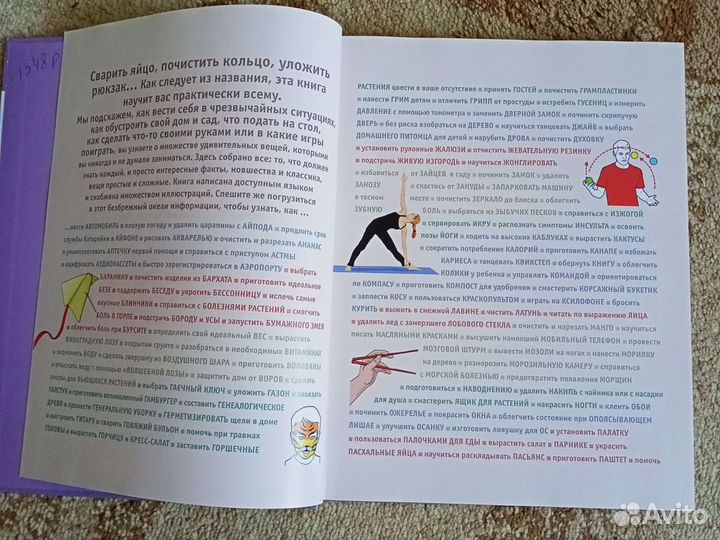 1348 р
Сварить яйцо, почистить кольцо, уложить
рюкзак... Как следует из названия, эта книга
научит вас практически всему.
Мы подскажем, как вести себя в чрезвычайных ситуациях,
как обустроить свой дом и сад, что подать на стол,
как сделать что-то своими руками или в какие игры
поиграть, вы узнаете о множестве удивительных вещей, которыми
вы никогда и не думали заниматься. Здесь собрано все: то, что должен
знать каждый, и просто интересные факты, новшества и классика,
вещи простые и сложные. Книга написана доступным языком
и снабжена множеством иллюстраций. Спешите же погрузиться
в этот безбрежный океан информации, чтобы узнать, как ...
...вести АВТОМОБИЛЬ в плохую погоду ▪ удалить царапины с АЙПОДА ▪ продлить срок
службы батарейки в АЙФОНЕ ▪ рисовать АКВАРЕЛЬЮ ▪ очистить и разрезать АНАНАС
▪ укомплектовать АПТЕЧКУ первой помощи ▪ справиться с приступом АСТМЫ
▪ оцифровать АУДИОКАССЕТЫ ▪ быстро зарегистрироваться в АЭРОПОРТУ ▪ выбрать
БАРАНИНУ ▪ почистить изделия из БАРХАТА ▪ приготовить идеальное
БЕЗЕ ▪ поддержать БЕСЕДУ ▪ укротить БЕССОННИЦУ ▪ испечь самые
вкусные БЛИНЧИКИ ▪ справиться с БОЛЕЗНЯМИ РАСТЕНИЙ ▪ смягчить
БОЛЬ В ГОРЛЕ ▪ подстричь БОРОДУ и УСЫ ▪ запустить БУМАЖНОГО ЗМЕЯ
▪ облегчить боль при БУРСИТЕ ▪ определить свой идеальный ВЕС ▪ вырастить
ВИНОГРАДНУЮ ЛОЗУ в открытом грунте ▪ разобраться в необходимых ВИТАМИНАХ
▪ экономить ВОДУ ▪ сделать зверушку из ВОЗДУШНОГО ШАРА ▪ приготовить ВОЛОВАНЫ
▪ отыскать воду с помощью «ВОЛШЕБНОЙ ЛОЗЫ» ▪ защитить дом от ВОРОВ ▪ сделать
опоры для ВЬЮЩИХСЯ РАСТЕНИЙ ▪ выбрать ГАЕЧНЫЙ КЛЮЧ ▪ уложить ГАЗОН ▪ завязать
ГАЛСТУК ▪ приготовить великолепный ГАМБУРГЕР ▪ составить ГЕНЕАЛОГИЧЕСКОЕ
ДРЕВО ▪ провести ГЕНЕРАЛЬНУЮ УБОРКУ ▪ ГЕРМЕТИЗИРОВАТЬ щели в доме
▪ настроить ГИТАРУ ▪ сварить ГОВЯЖИЙ БУЛЬОН ▪ помочь при травмах
ГОЛОВЫ ▪ вырастить ГОРЧИЦУ и КРЕСС-САЛАТ ▪ заставить ГОРШЕЧНЫЕ
РАСТЕНИЯ цвести в ваше отсутствие ▪ принять ГОСТЕЙ ▪ почистить ГРАМПЛАСТИНКИ
▪ нанести ГРИМ детям ▪ отличить ГРИПП от простуды ▪ истребить ГУСЕНИЦ ▪ измерить
ДАВЛЕНИЕ с помощью тонометра ▪ заменить ДВЕРНОЙ ЗАМОК ▪ починить скрипучую
ДВЕРЬ ▪ без риска взобраться на ДЕРЕВО ▪ научиться танцевать ДЖАЙВ ▪ выбрать
ДОМАШНЕГО ПИТОМЦА для детей ▪ нарубить ДРОВА ▪ почистить ДУХОВКУ
▪ установить рулонные ЖАЛЮЗИ ▪ отчистить ЖЕВАТЕЛЬНУЮ РЕЗИНКУ
▪ подстричь ЖИВУЮ ИЗГОРОДЬ ▪ научиться ЖОНГЛИРОВАТЬ
▪ избавиться от ЗАЙЦЕВ в саду ▪ починить ЗАМОК ▪ удалить
ЗАНОЗУ ▪ спастись от ЗАНУДЫ ▪ ЗАПАРКОВАТЬ МАШИНУ
в тесном месте ▪ почистить ЗЕРКАЛО до блеска ▪ облегчить
ЗУБНУЮ БОЛЬ ▪ выбраться из ЗЫБУЧИХ ПЕСКОВ ▪ справиться с ИЗЖОГОЙ
▪ сервировать ИКРУ ▪ распознать симптомы ИНСУЛЬТА ▪ освоить
позы ЙОГИ ▪ ходить на высоких КАБЛУКАХ ▪ вырастить КАКТУСЫ
▪ сократить потребление КАЛОРИЙ ▪ приготовить КАНАПЕ ▪ избежать
КАРИЕСА ▪ танцевать КВИКСТЕП ▪ обернуть КНИГУ ▪ облегчить
КОЛИКИ у ребенка ▪ управлять КОМАНДОЙ ▪ ориентироваться
по КОМПАСУ ▪ приготовить КОМПОСТ для удобрения ▪ смастерить КОРСАЖНЫЙ БУКЕТИК
▪ заплести КОСУ ▪ пользоваться КРАСКОПУЛЬТОМ ▪ играть на КСИЛОФОНЕ ▪ бросить
КУРИТЬ ▪ выжить в снежной ЛАВИНЕ ▪ чистить ЛАТУНЬ ▪ читать по выражению ЛИЦА
▪ удалить лед с замерзшего ЛОБОВОГО СТЕКЛА ▪ очистить и нарезать МАНГО ▪ научиться
писать МАСЛЯНЫМИ КРАСКАМИ ▪ высушить намокший МОБИЛЬНЫЙ ТЕЛЕФОН ▪ провести
МОЗГОВОЙ ШТУРМ ▪ вывести МОЗОЛИ на ногах ▪ нанести МОРИЛКУ
на дерево ▪ разморозить МОРОЗИЛЬНУЮ КАМЕРУ ▪ справиться
с МОРСКОЙ БОЛЕЗНЬЮ ▪ предотвратить появление МОРЩИН
▪ подготовиться к НАВОДНЕНИЮ ▪ удалить НАКИПЬ с чайника или с насадки
для душа ▪ смастерить ЯЩИК ДЛЯ РАСТЕНИЙ ▪ накрасить НОГТИ ▪ клеить ОБОИ
▪ починить ОЖЕРЕЛЬЕ ▪ покрасить ОКНА ▪ облегчить состояние при ОПОЯСЫВАЮЩЕМ
ЛИШАЕ ▪ улучшить ОСАНКУ ▪ изготовить ловушку для ОС ▪ установить ПАЛАТКУ
▪ пользоваться ПАЛОЧКАМИ ДЛЯ ЕДЫ ▪ вырастить салат в ПАРНИКЕ ▪ украсить
ПАСХАЛЬНЫЕ ЯЙЦА ▪ научиться раскладывать ПАСЬЯНС ▪ приготовить ПАШТЕТ ▪ помочь
Avito